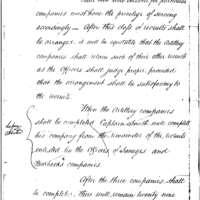 companies must have the privilege of serving
accordingly — After this class of recruits shall
be arranged, it will be equitable that the Artillery
companies shall retain such of their recruits
as the Officers shall judge proper, provided
that the arrangement shall be satisfactory to
the recruits.
When the Artillery companies
shall be completed, Captain Smith will complete
his company from the remainder of the recruits
enlisted by the Officers of Savages and
Burbecks companies.
After the three companies shall
be complete, there will remain twenty nine